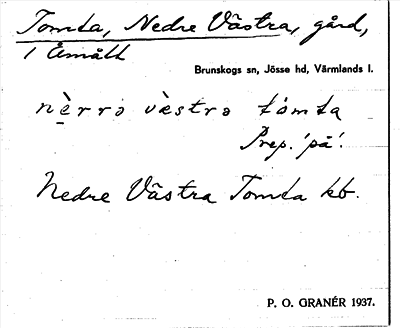 Tomta, Nedre Västra, gård,
1 Åmått
Brunskogs sn, Jösse hd, Värmlands l.
nèrrə vèstrə tómta
Prep. 'på'.
Nedre Västra Tomta kb.
P. O. GRANÉR 1937.